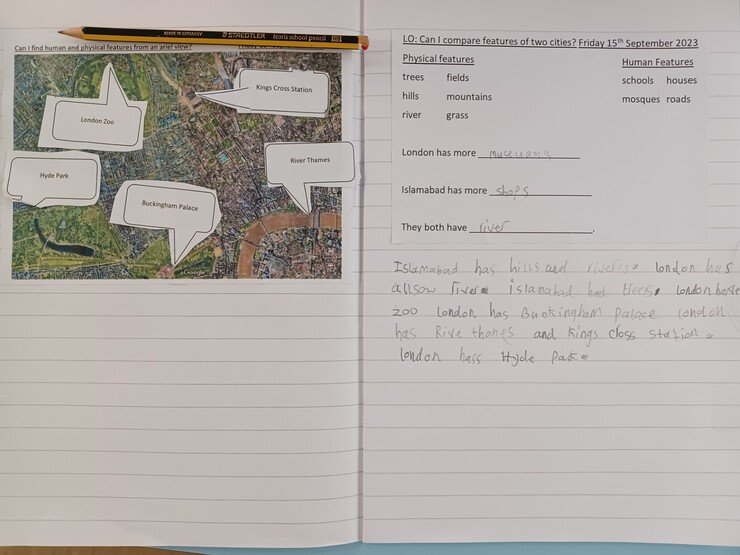 MADE IN GERMANY STAEDTLER Noris school pencil HB
Can I find human and physical features from an ariel view?
London Zoo
Kings Cross Station
Hyde Park
River Thames
Buckingham Palace
LO: Can I compare features of two cities? Friday 15th September 2023
Physical features
trees fields
hills mountains
river grass
Human Features
schools houses
mosques roads
London has more museuam's
Islamabad has more shops
They both have river.
Islamabad has hills and rivers. london has
allsow river islamabad hat trees. london have
zoo london has Buckingham palace london
has Rive thames and Kings closs station.
london hass Hyde Pak.